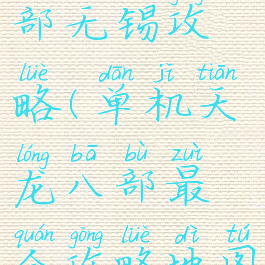 部无锡攻
lüè dān jī tiān
略(单机天
lóng bā bù zuì
龙八部最
quán gōng lüè dì tú
全攻略地图